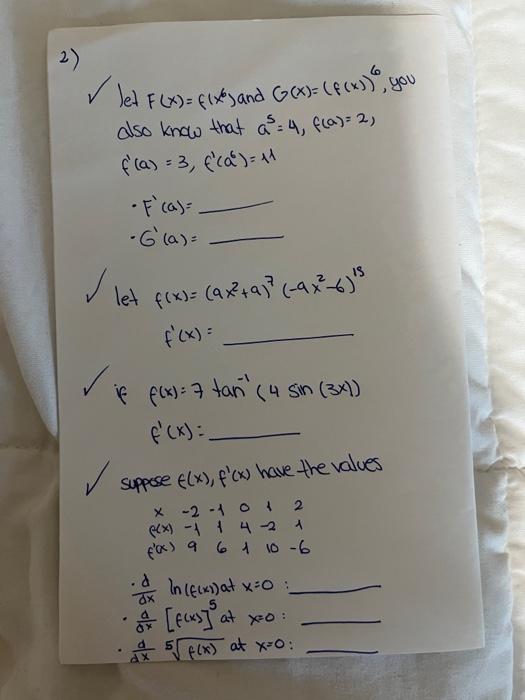 2)
✓ let F(x) = f(x⁶) and G(x) = (f(x))⁶, you
also know that a⁵ = 4, f(a) = 2,
f'(a) = 3, f'(a⁶) = 11
• F'(a) = ______
• G'(a) = ______
✓ let f(x) = (9x²+9)⁷ (-9x²-6)¹⁵
f'(x) = ______
✓ if f(x) = 7 tan⁻¹ (4 sin (3x))
f'(x) = ______
✓ suppose f(x), f'(x) have the values
x -2 -1 0 1 2
f(x) -1 1 4 -2 1
f'(x) 9 6 1 10 -6
• d/dx ln(f(x)) at x=0 : ______
• d/dx [f(x)]⁵ at x=0 : ______
• d/dx ⁵√f(x) at x=0 : ______